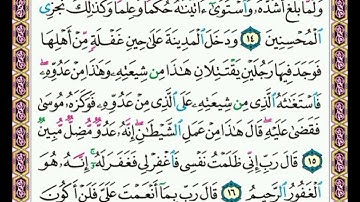 وَلَمَّا بَلَغَ أَشُدَّهُۥ وَٱسْتَوَىٰٓ ءَاتَيْنَٰهُ حُكْمًا وَعِلْمًا وَكَذَٰلِكَ نَجْزِى
ٱلْمُحْسِنِينَ ١٤ وَدَخَلَ ٱلْمَدِينَةَ عَلَىٰ حِينِ غَفْلَةٍ مِّنْ أَهْلِهَا
فَوَجَدَ فِيهَا رَجُلَيْنِ يَقْتَتِلَانِ هَٰذَا مِن شِيعَتِهِۦ وَهَٰذَا مِنْ عَدُوِّهِۦ
فَٱسْتَغَٰثَهُ ٱلَّذِى مِن شِيعَتِهِۦ عَلَى ٱلَّذِى مِنْ عَدُوِّهِۦ فَوَكَزَهُۥ مُوسَىٰ
فَقَضَىٰ عَلَيْهِ قَالَ هَٰذَا مِنْ عَمَلِ ٱلشَّيْطَٰنِ إِنَّهُۥ عَدُوٌّ مُّضِلٌّ مُّبِينٌ
١٥ قَالَ رَبِّ إِنِّى ظَلَمْتُ نَفْسِى فَٱغْفِرْ لِى فَغَفَرَ لَهُۥٓ إِنَّهُۥ هُوَ
ٱلْغَفُورُ ٱلرَّحِيمُ ١٦ قَالَ رَبِّ بِمَآ أَنْعَمْتَ عَلَىَّ فَلَنْ أَكُونَ